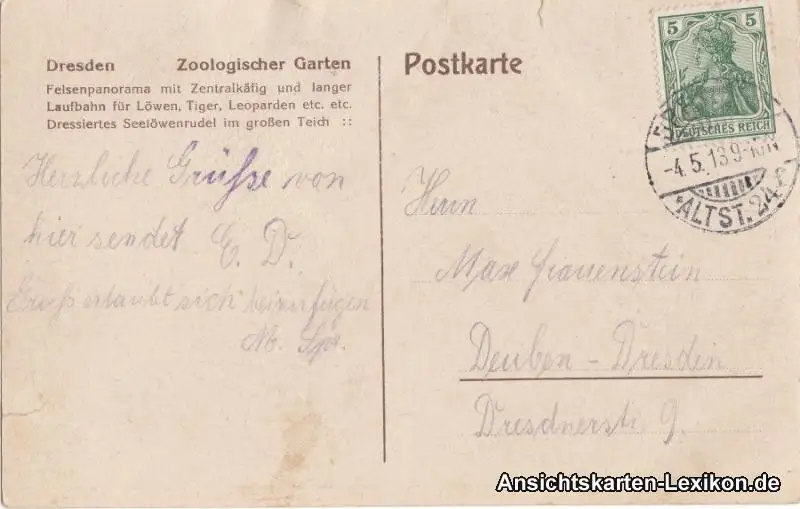 Dresden Zoologischer Garten
Felsenpanorama mit Zentralkäfig und langer
Laufbahn für Löwen, Tiger, Leoparden etc. etc.
Dressiertes Seelöwenrudel im großen Teich ::
Herzliche Grüße von
hier sendet E. D.
Gruß erlaubt sich beizufügen
M.
Postkarte
5 5
DEUTSCHES REICH
-4.5.13 9-10N
*ALTST. 24
Herrn
Max Frauenstein
Deuben - Dresden
Dresdnerstr. 9.
Ansichtskarten-Lexikon.de